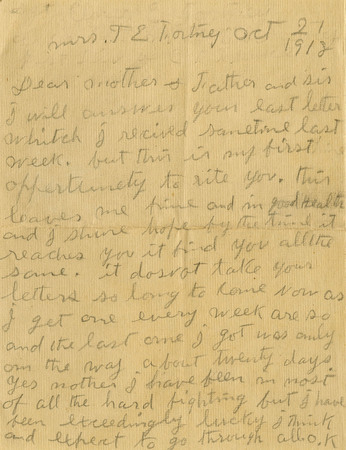 mrs. T E Fortney Oct 21
1918
Dear mother & Father and sis
I will answer your last letter
whitch I recived sometime last
week. but this is my first
oppertunety to rite you. this
leaves me fine and in good Health
and I shure hope by the time it
reaches you it find you all the
same. it dosnot take your
letters so long to come now as
I get one every week are so
and the last one I got was only
on the way about twenty days
Yes mother I have been in most
of all the hard fighting but I have
been exceedingly lucky I think
and expect to go through all O.K